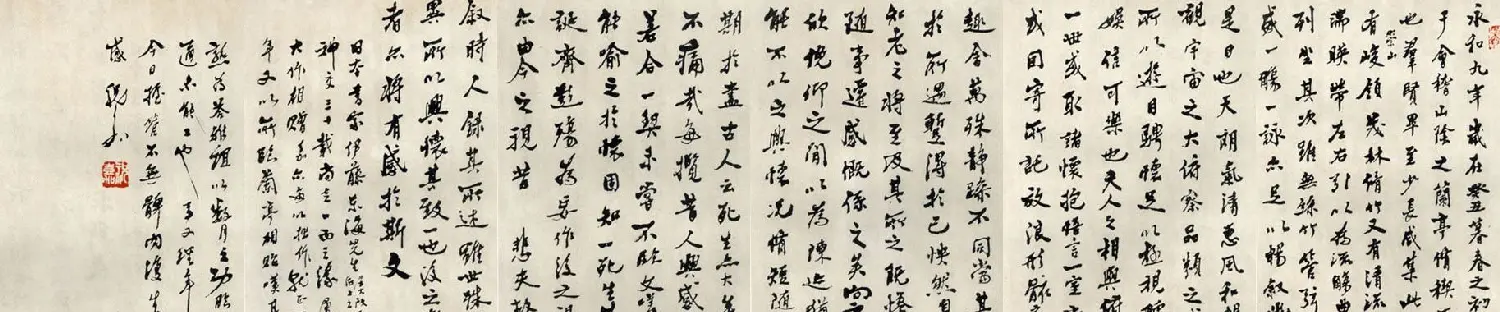 永和九年歲在癸丑暮春之初
于會稽山陰之蘭亭脩稧
也羣賢畢至少長咸集此
有崇山峻領茂林脩竹又有清流
湍暎帶左右引以為流觴曲
列坐其次雖無絲竹管弦
盛一觴一詠亦足以暢敘幽
是日也天朗氣清惠風和
觀宇宙之大俯察品類之
所以遊目騁懷足以極視聽
娛信可樂也夫人之相與俯
一世或取諸懷抱悟言一室
或因寄所託放浪形骸
趣舍萬殊靜躁不同當其
於所遇蹔得於己怏然自
知老之將至及其所之既惓
隨事遷感慨係之矣向之
欣俛仰之閒以為陳迹猶
能不以之興懷況脩短隨
期於盡古人云死生亦大矣
不痛哉每攬昔人興感
若合一契未嘗不臨文嗟
能喻之於懷固知一死生
誕齊彭殤為妄作後之視
亦由今之視昔 悲夫故
敘時人錄其所述雖世殊
異所以興懷其致一也後之
者亦將有感於斯文
日本書家伊藤東海先生
神交三十載尚乏一面之緣
大作相贈余亦每以拙作
年又以所臨蘭亭相貽嘆其
以數月之功臨
道未能工也
今日握管不無
感